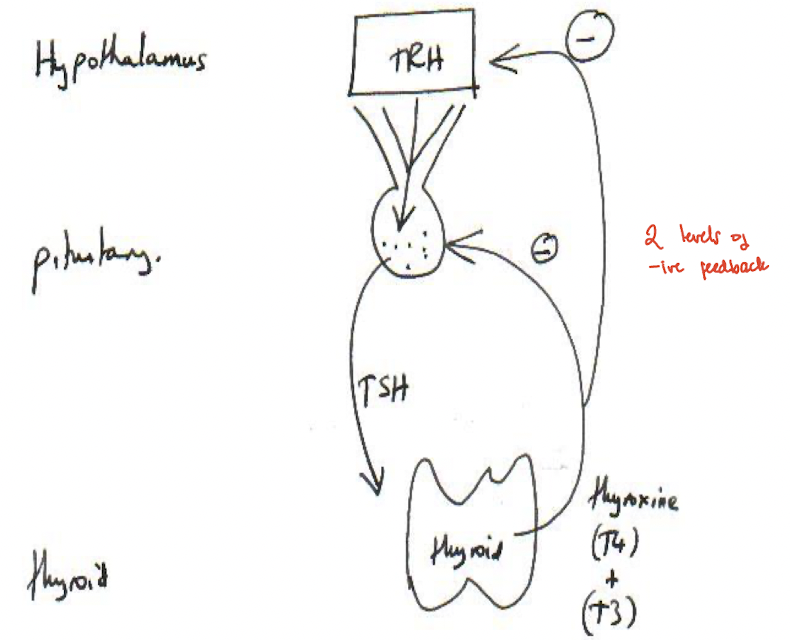 Hypothalamus
TRH
-
pituitary.
-
2 levels of
-ive feedback
TSH
thyroid
thyroid
thyroxine
(T4)
+
(T3)